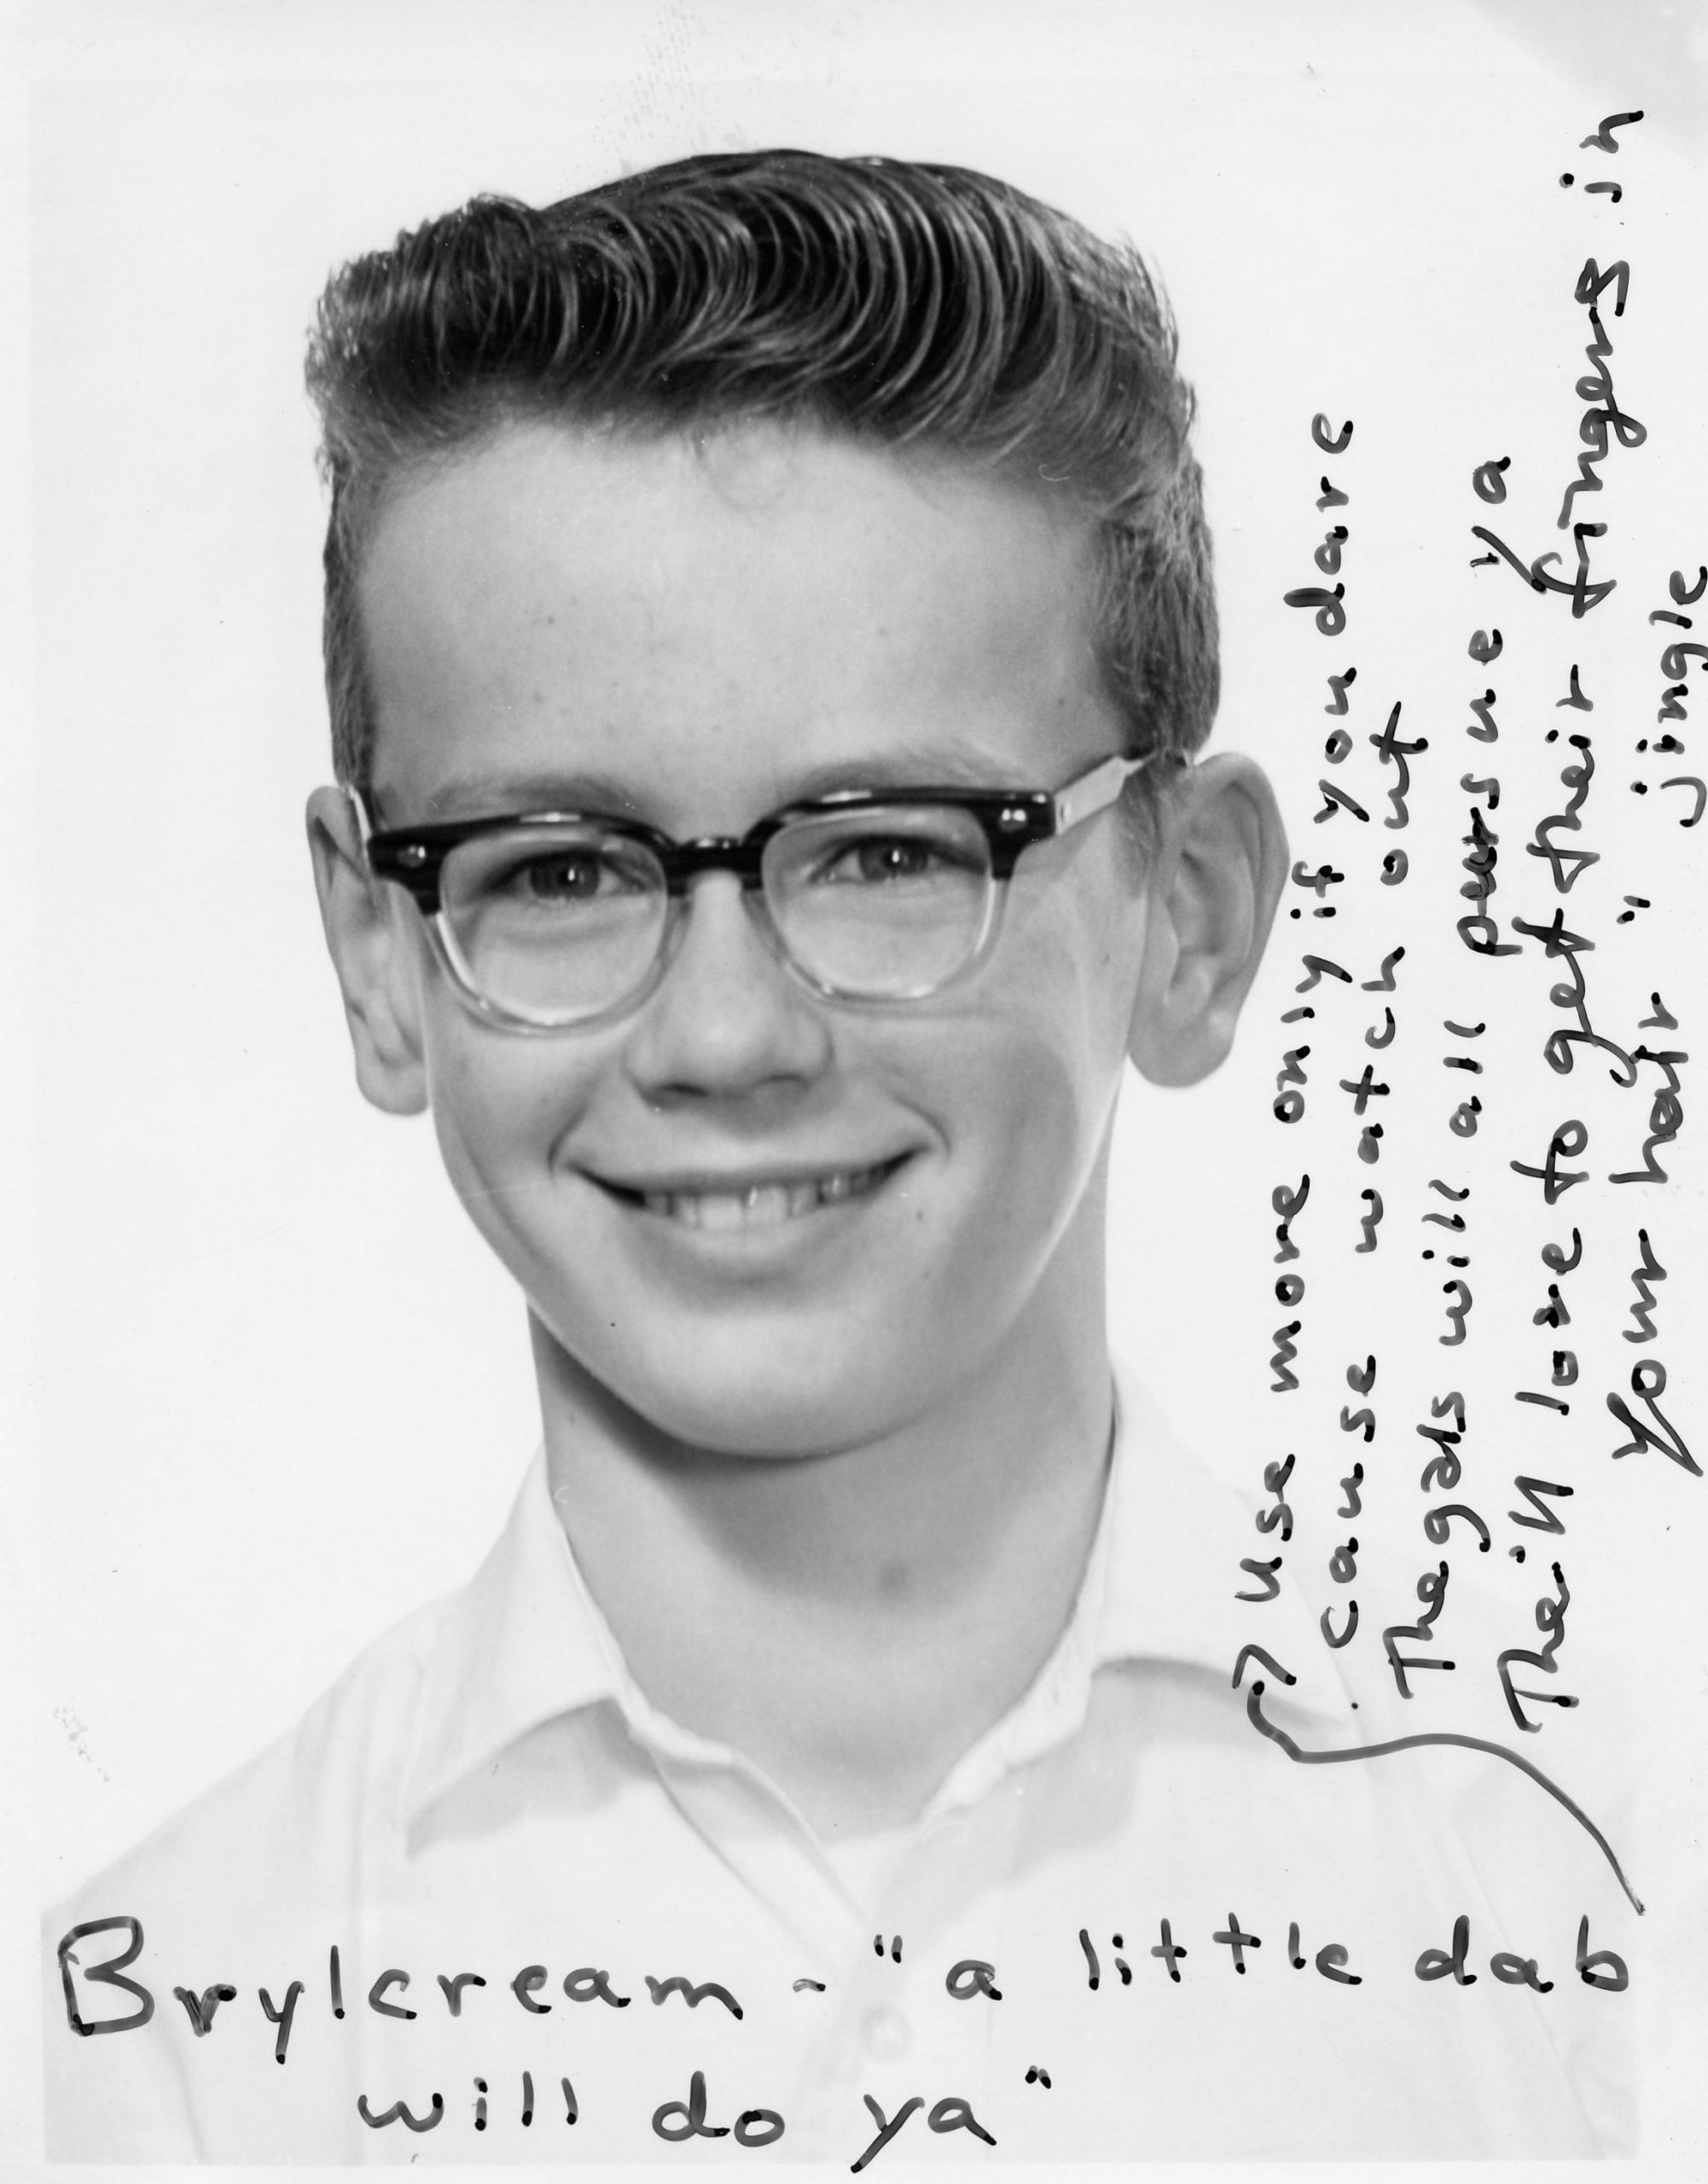 Brylcream - "a little dab
will do ya"
Use more only if you dare
cause watch out
The gals will all pursue ya
Theill love to get their fingers in
Your hair" jingle